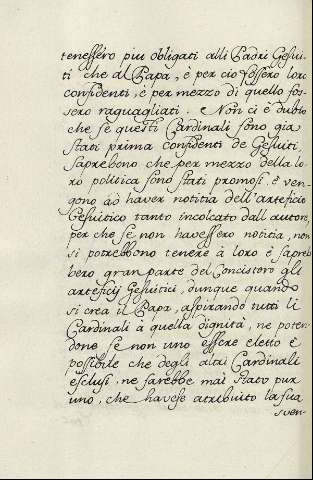 tenessero piu obligati alli Padri Gesui-
ti che al Papa, è per cio fossero loro
confidenti, è per mezzo di quello fos-
sero raguagliati. Non ci è dubio
che se questi Cardinali sono gia
stati prima confidenti de Gesuiti,
saprebono che per mezzo della lo-
ro politica sono stati promosi, è ven-
gono àò haver notitia dell'arteficio
Gesuitico tanto incolcato dall'autore,
per che se non havessero notitia, non
si potrebbono tenere à loro è sapreb
bero gran parte del Concistoro gli
arteficij Gesuitici, dunque quando
si crea il Papa, aspirando tutti li
Cardinali à quella dignità, ne poten-
done se non uno essere eletto è
possibile che degli altri Cardinali
esclusi, ne sarebbe mai stato pur
uno, che havese atribuito la sua
sven-